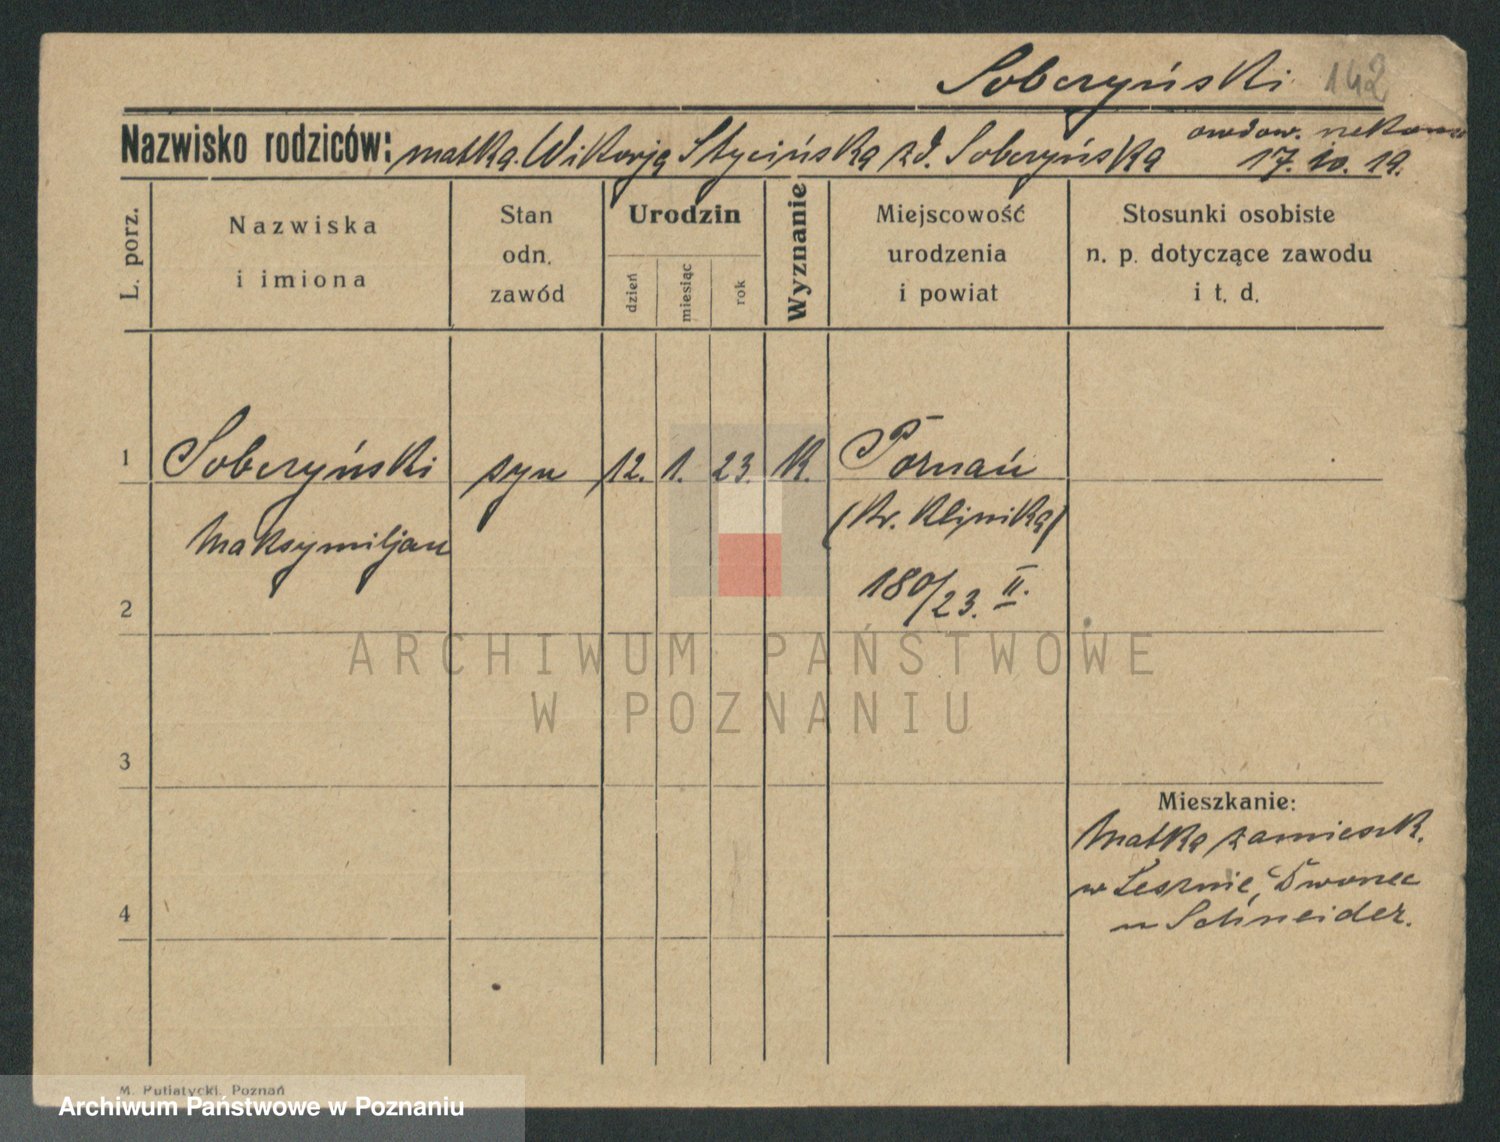 Soberzyński 142
Nazwisko rodziców: matka Wiktorja Stycińska zd. Soberzyńska owdow. rzekomo
17. 10. 19.
L. porz.
Nazwiska
i imiona
Stan
odn.
zawód
Urodzin
dzień
miesiąc
rok
Wyznanie
Miejscowość
urodzenia
i powiat
Stosunki osobiste
n. p. dotyczące zawodu
i t. d.
1 Soberzyński syn 12. 1. 23. K. Poznań
Maksymiljan (Kr. Klinika)
2 180/23. II.
ARCHIWUM PAŃSTWOWE
W POZNANIU
3
Mieszkanie:
Matka zamieszk.
w Lesznie, Dworzec
4 u Schneider.
M. Putiatycki, Poznań
Archiwum Państwowe w Poznaniu